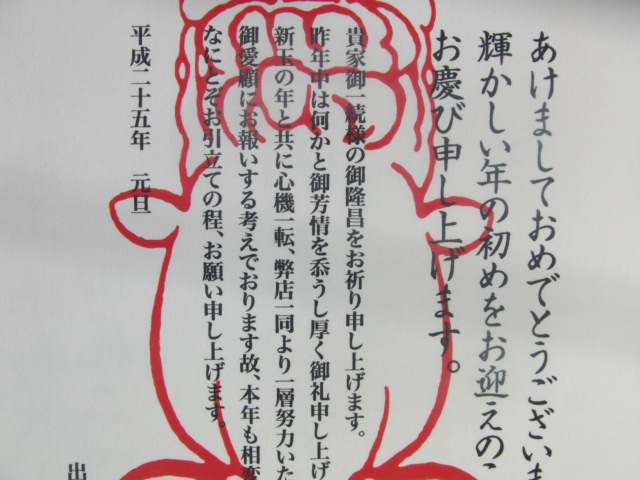 あけましておめでとうございま
輝かしい年の初めをお迎えのこ
お慶び申し上げます。
貴家御一統様の御隆昌をお祈り申し上げます。
昨年中は何かと御芳情を忝うし厚く御礼申し上げ
新玉の年と共に心機一転、弊店一同より一層努力いた
御愛顧にお報いする考えでおります故、本年も相変
なにとぞお引立ての程、お願い申し上げます。
平成二十五年 元旦
出